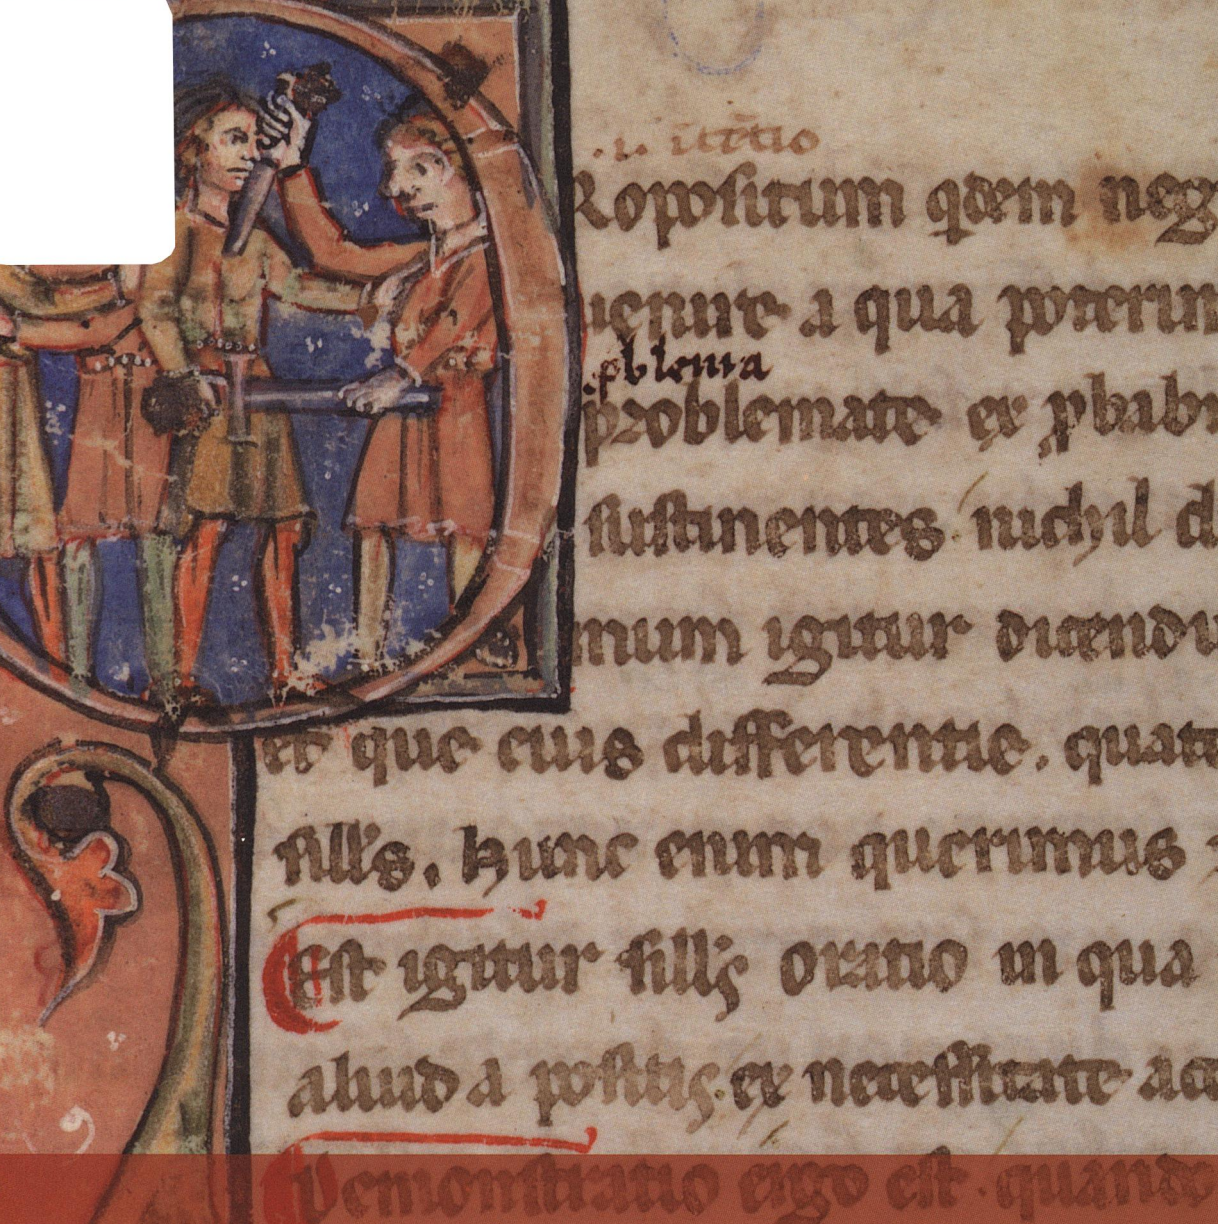 .i. ītētio
Ropositum qdem neg
uenire a qua poterim
.pblema
problemate ex pbabi
sustinentes nichil d
mum igitur dicendu
et que eius differentie. quatu
sill's. Hunc enim querimus
Est igitur sill's oratio in qua
aliud a positis ex necessitate acc
Demonstratio ergo est. quando